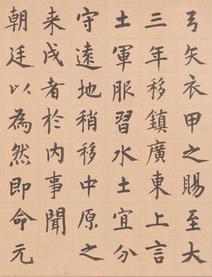 弓矢衣甲之賜至大
三年移鎮廣東上言
土軍服習水土宜分
守遠地稍移中原之
来戍者於内事聞
朝廷以為然即命元